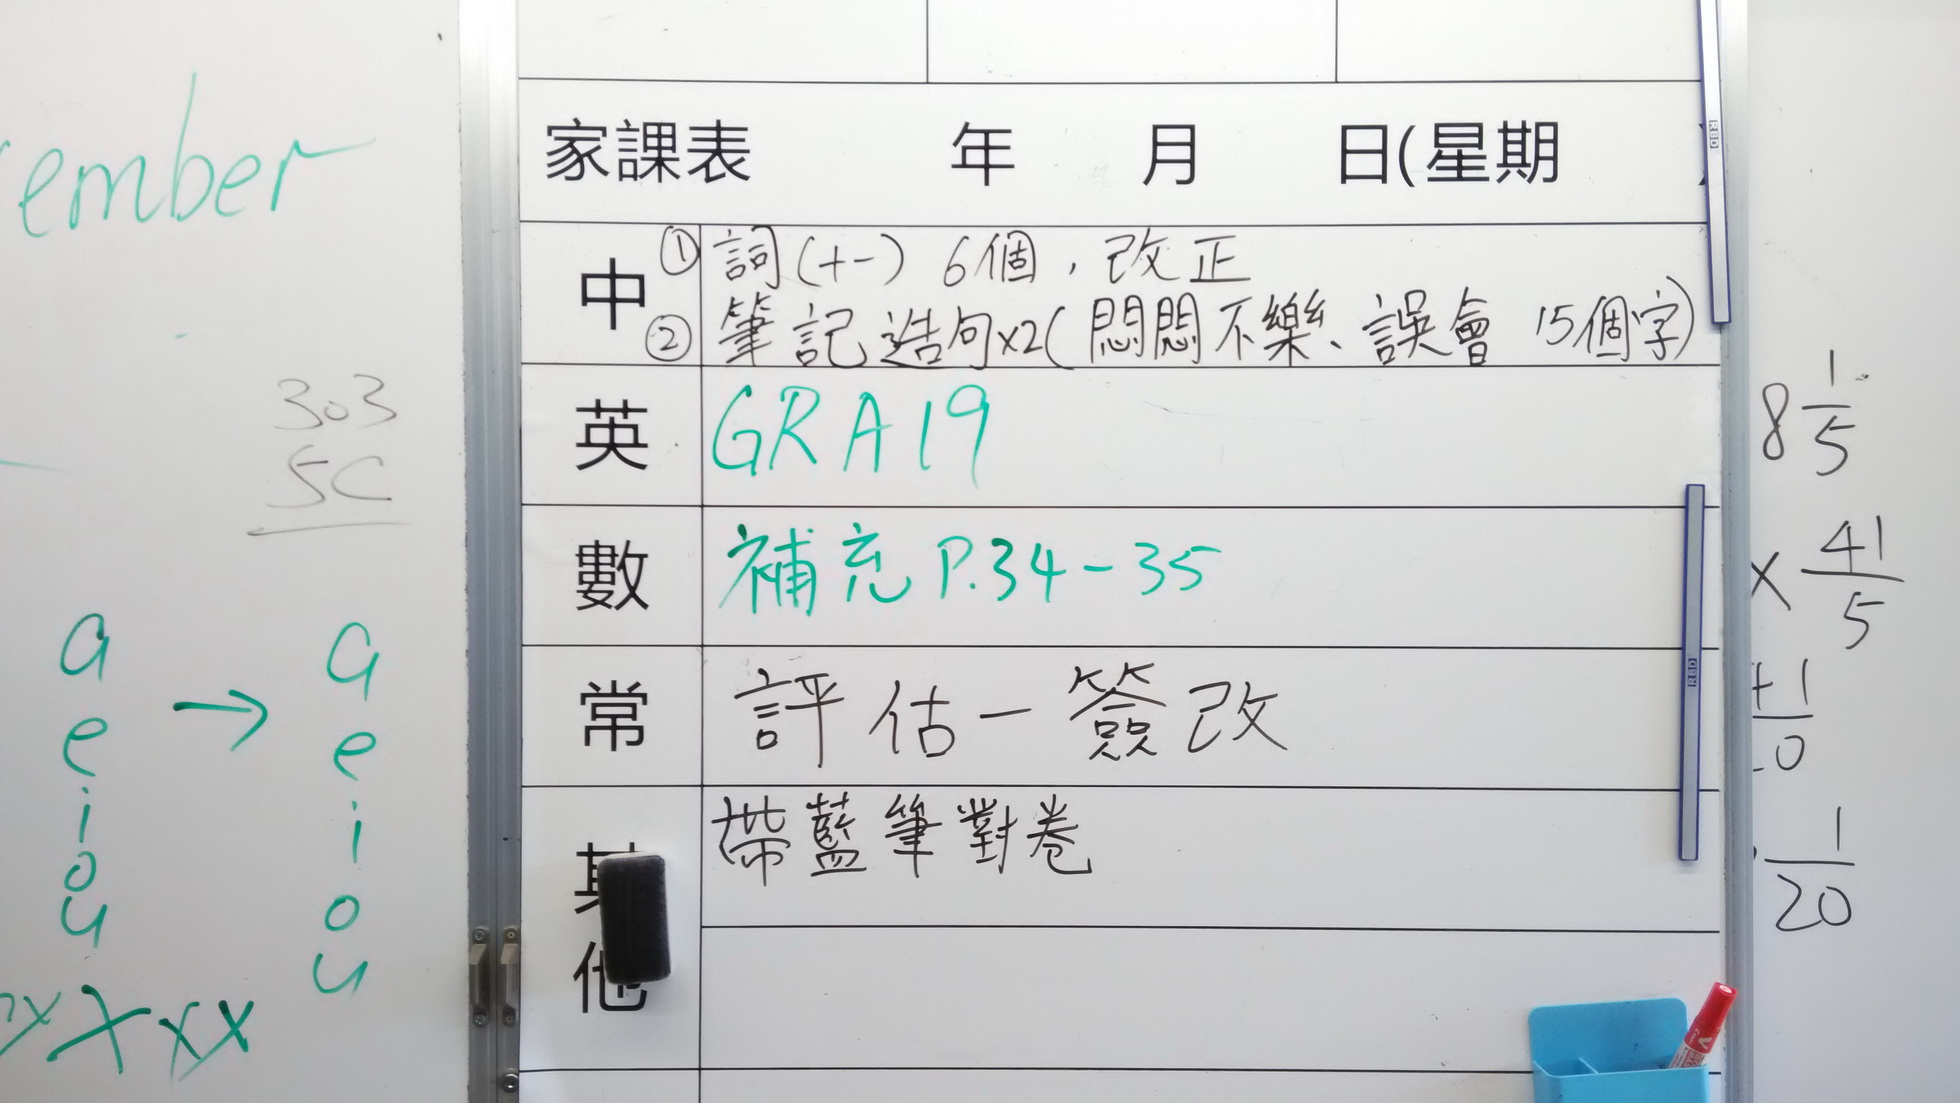 ember
303
5C
a
e
i
o
u
→
a
e
i
o
u
x X x x
家課表 年 月 日(星期 )
中
① 詞(十一) 6個，改正
② 筆記 造句x2(悶悶不樂、誤會 15個字)
英
GRA19
數
補充 P.34-35
常
評估一簽改
其他
帶藍筆對卷
8 1/5
x 41/5
1/20